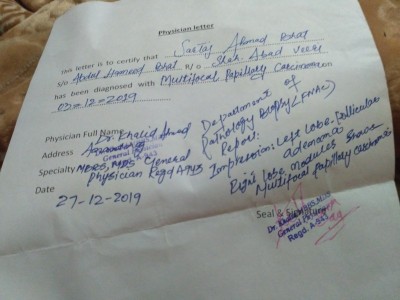 Physician letter
This letter is to certify that Sartaj Ahmad Bhat
S/o Abdul Hameed Bhat R/o Shah Abad Veeri
has been diagnosed with Multifocal Papillary Carcinoma
03-12-2019
Physician Full Name Dr. Khalid
Address
Specialty MBBS, General
Physician Regd A943
Date
27-12-2019
Department of
Pathology Biopsy (FNAC)
Report:
Impression: Left Lobe: follicular
adenoma
Right lobe nodules
Multifocal papillary carcinoma
Seal & Signature
Dr.
General
Regd.